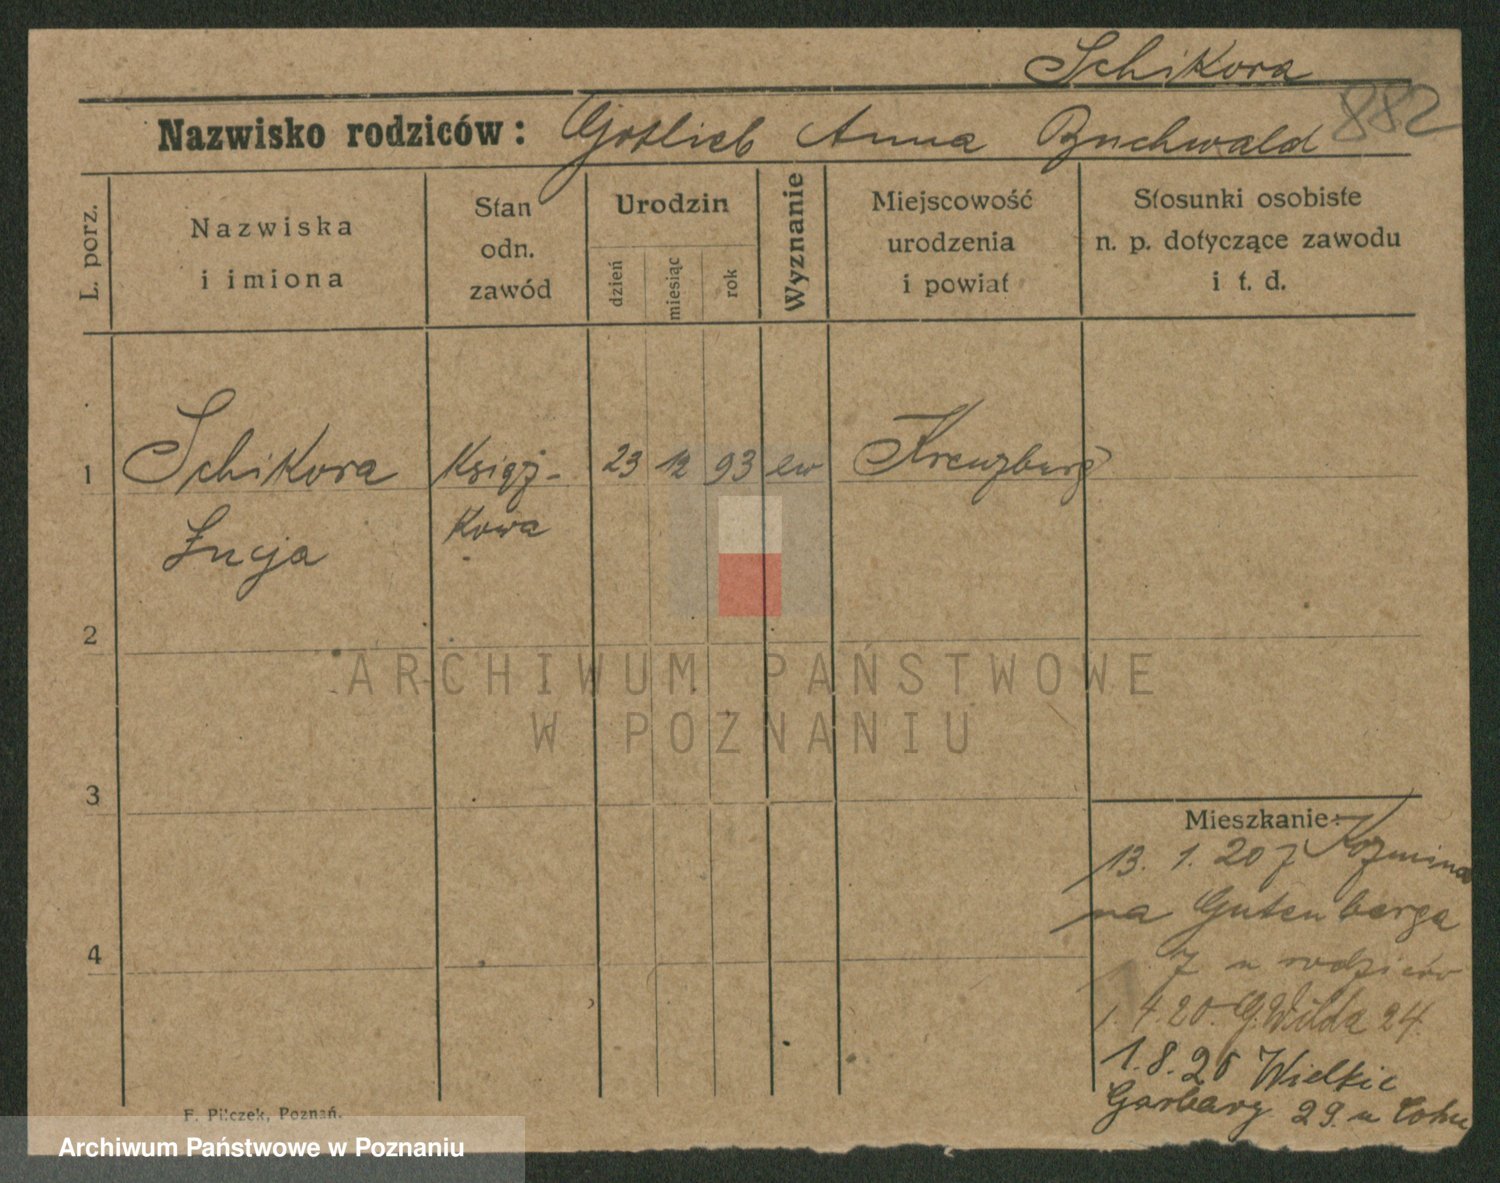 Schikora
882
Nazwisko rodziców: Gotlieb Anna Buchwald
L. porz.
Nazwiska
i imiona
Stan
odn.
zawód
Urodzin
dzień
miesiąc
rok
Wyznanie
Miejscowość
urodzenia
i powiat
Stosunki osobiste
n. p. dotyczące zawodu
i t. d.
1 Schikora Księż- 23 12 93 ew Kreuzburg
Łucja kowa
2
3
4
Mieszkanie:
13. 1. 20 z Kozmina
na Gutenberga
7 u rodziców
1. 4. 20. G. Wilda 24.
1. 8. 26 Wielkie
Garbary 29. u Cohn
F. Pilczek, Poznań.
ARCHIWUM PAŃSTWOWE
W POZNANIU
Archiwum Państwowe w Poznaniu